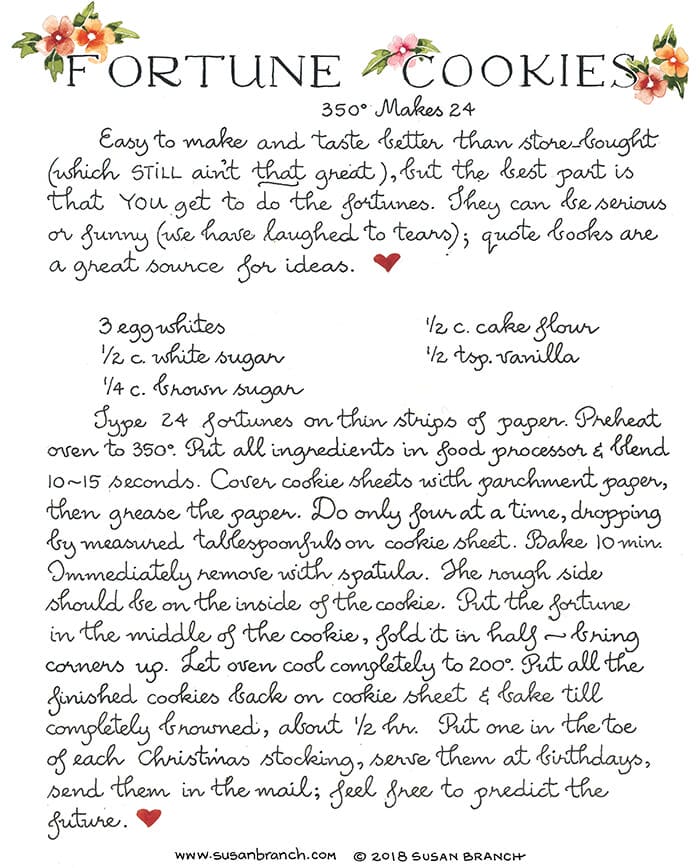 FORTUNE COOKIES
350° Makes 24
Easy to make and taste better than store-bought
(which STILL ain't that great), but the best part is
that YOU get to do the fortunes. They can be serious
or funny (we have laughed to tears); quote books are
a great source for ideas. ♥
3 egg whites
1/2 c. white sugar
1/4 c. brown sugar
1/2 c. cake flour
1/2 tsp. vanilla
Type 24 fortunes on thin strips of paper. Preheat
oven to 350°. Put all ingredients in food processor & blend
10~15 seconds. Cover cookie sheets with parchment paper,
then grease the paper. Do only four at a time, dropping
by measured tablespoonfuls on cookie sheet. Bake 10 min.
Immediately remove with spatula. The rough side
should be on the inside of the cookie. Put the fortune
in the middle of the cookie, fold it in half ~ bring
corners up. Let oven cool completely to 200°. Put all the
finished cookies back on cookie sheet & bake till
completely browned, about 1/2 hr. Put one in the toe
of each Christmas stocking, serve them at birthdays,
send them in the mail; feel free to predict the
future. ♥
www.susanbranch.com © 2018 SUSAN BRANCH